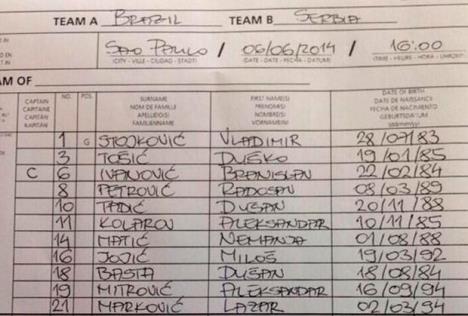 TEAM A BRAZIL TEAM B SERBIA
SAO PAULO / 06/06/2014 / 16:00
(CITY - VILLE - CIUDAD - STADT) (DATE - DATE - FECHA - DATUM) (TIME - HEURE - HORA - UHRZEIT)
AM OF
CAPTAIN CAPITAINE CAPITÁN KAPITÄN NO. POS. SURNAME NOM DE FAMILLE APELLIDO(S) FAMILIENNAME FIRST NAME(S) PRÉNOM(S) NOMBRE(S) VORNAME(N) DATE OF BIRTH DATE DE NAISSANCE FECHA DE NACIMIENTO GEBURTSDATUM
1 G STOJKOVIĆ VLADIMIR 28/07/83
3 TOŠIĆ DUŠKO 19/01/85
C 6 IVANOVIĆ BRANISLAV 22/02/84
8 PETROVIĆ RADOSAV 08/03/89
10 TADIĆ DUŠAN 20/11/88
11 KOLAROV ALEKSANDAR 10/11/85
14 MATIĆ NEMANJA 01/08/88
16 JOJIĆ MILOŠ 19/03/92
18 BASTA DUŠAN 18/08/84
19 MITROVIĆ ALEKSANDAR 16/09/94
21 MARKOVIĆ LAZAR 02/03/94